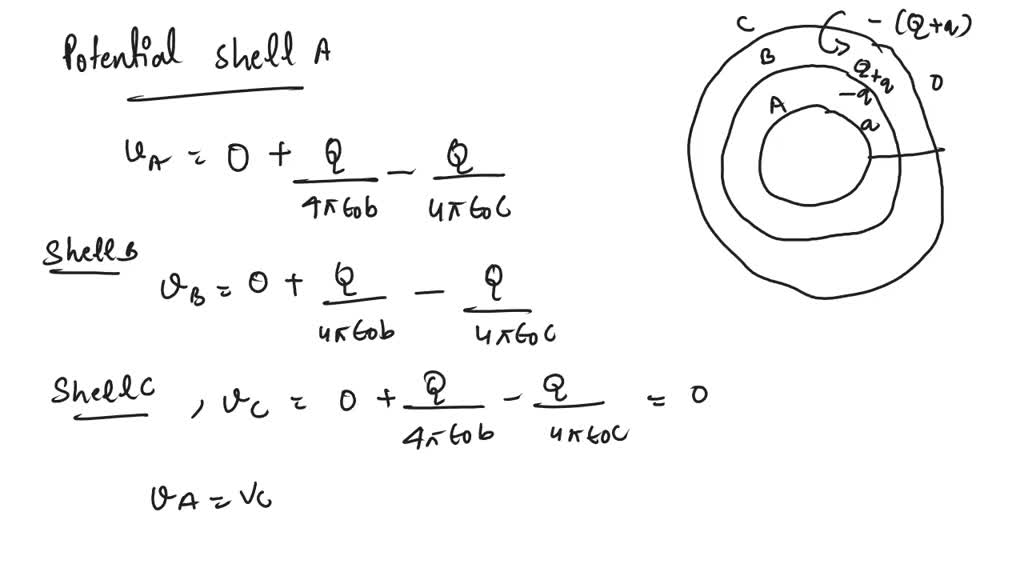 Potential shell A
V_A = 0 + Q/4πε0b − Q/4πε0c
Shell B
V_B = 0 + Q/4πε0b − Q/4πε0c
Shell C , V_C = 0 + Q/4πε0b − Q/4πε0c = 0
V_A = V_C
C
− (Q+q)
B
Q+q
0
−q
A
q